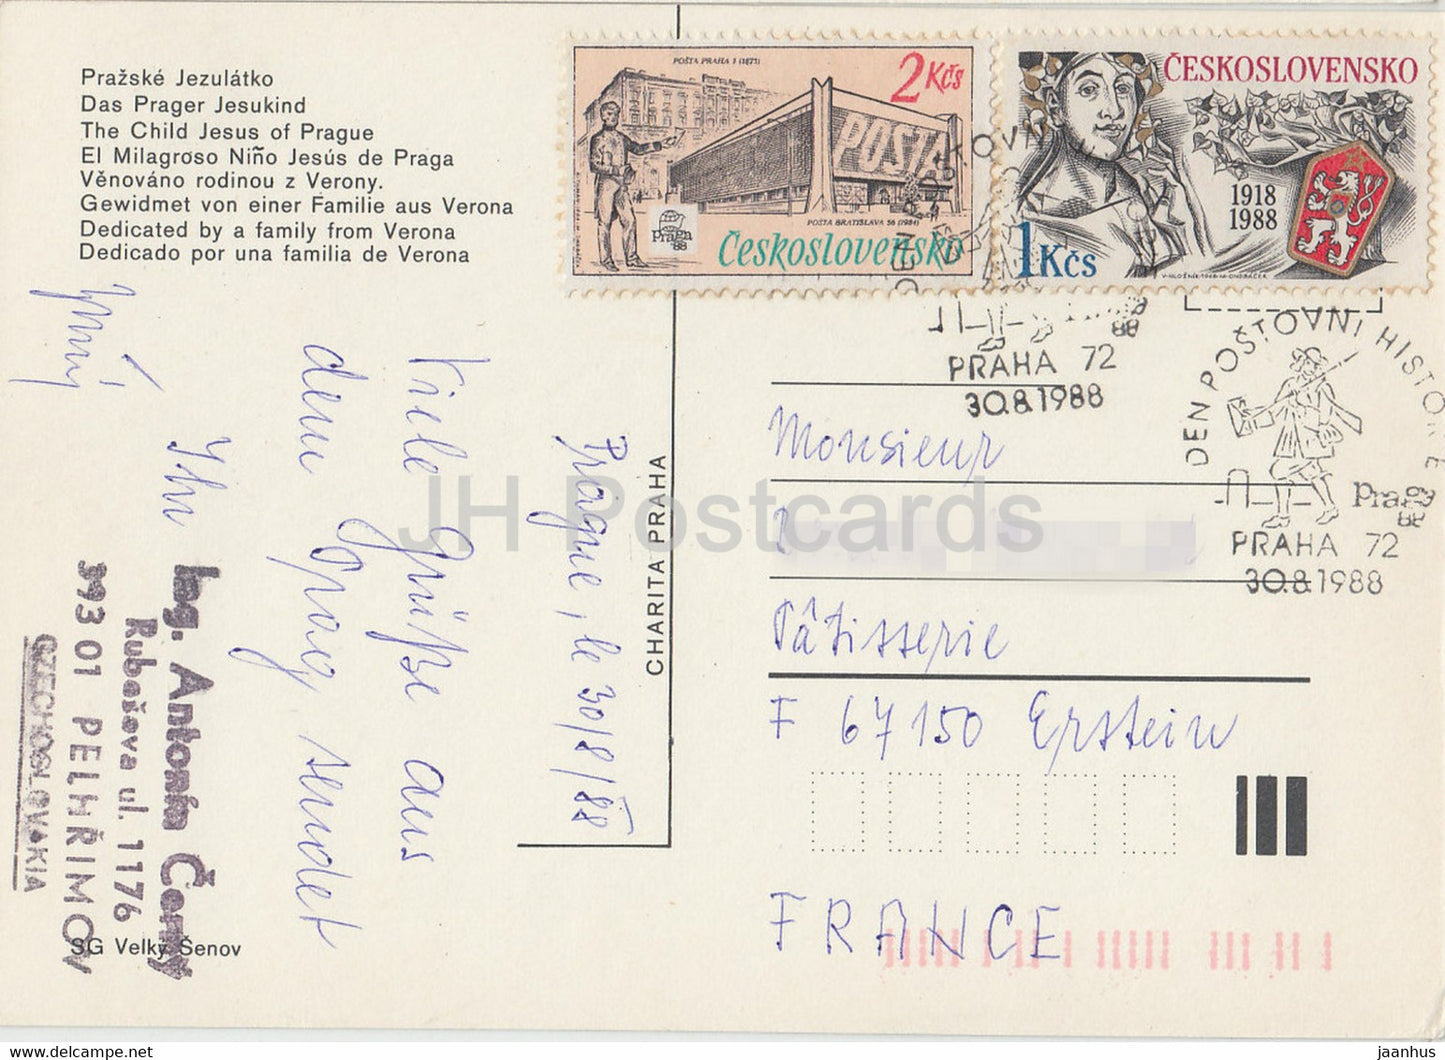 Pražské Jezulátko
Das Prager Jesukind
The Child Jesus of Prague
El Milagroso Niño Jesús de Praga
Věnováno rodinou z Verony.
Gewidmet von einer Familie aus Verona
Dedicated by a family from Verona
Dedicado por una familia de Verona
POŠTA PRAHA 1 (1871)
2 Kčs
POSTA
POŠTA BRATISLAVA 56 (1984)
praga 88
Československo
ČESKOSLOVENSKO
1918
1988
1 Kčs
PRAHA 72
30.8.1988
DEN POŠTOVNÍ HISTORIE
Praga 88
PRAHA 72
30.8.1988
Prague, le 30/8/88
Viele Grüße aus
dem Prag sendet
Ihr
Ing. Antonín Černý
Rubešova ul. 1176
393 01 PELHŘIMOV
CZECHOSLOVAKIA
CHARITA PRAHA
SG Velký Šenov
Monsieur
Pâtisserie
F 67150 Erstein
FRANCE
JH Postcards
www.delcampe.net
jaanhus